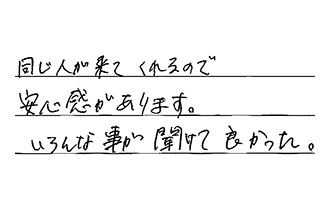 同じ人が来てくれるので
安心感があります。
いろんな事が聞けて良かった。